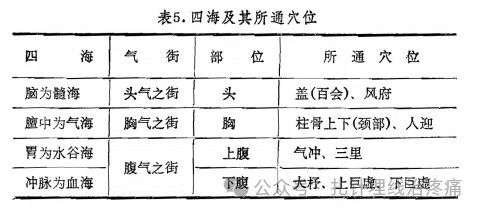 表5.四海及其所通穴位
四 海 气 街 部 位 所 通 穴 位
脑为髓海 头气之街 头 盖(百会)、风府
膻中为气海 胸气之街 胸 柱骨上下(颈部)、人迎
胃为水谷海 腹气之街 上腹 气冲、三里
冲脉为血海 下腹 大杼、上巨虚、下巨虚
公众号